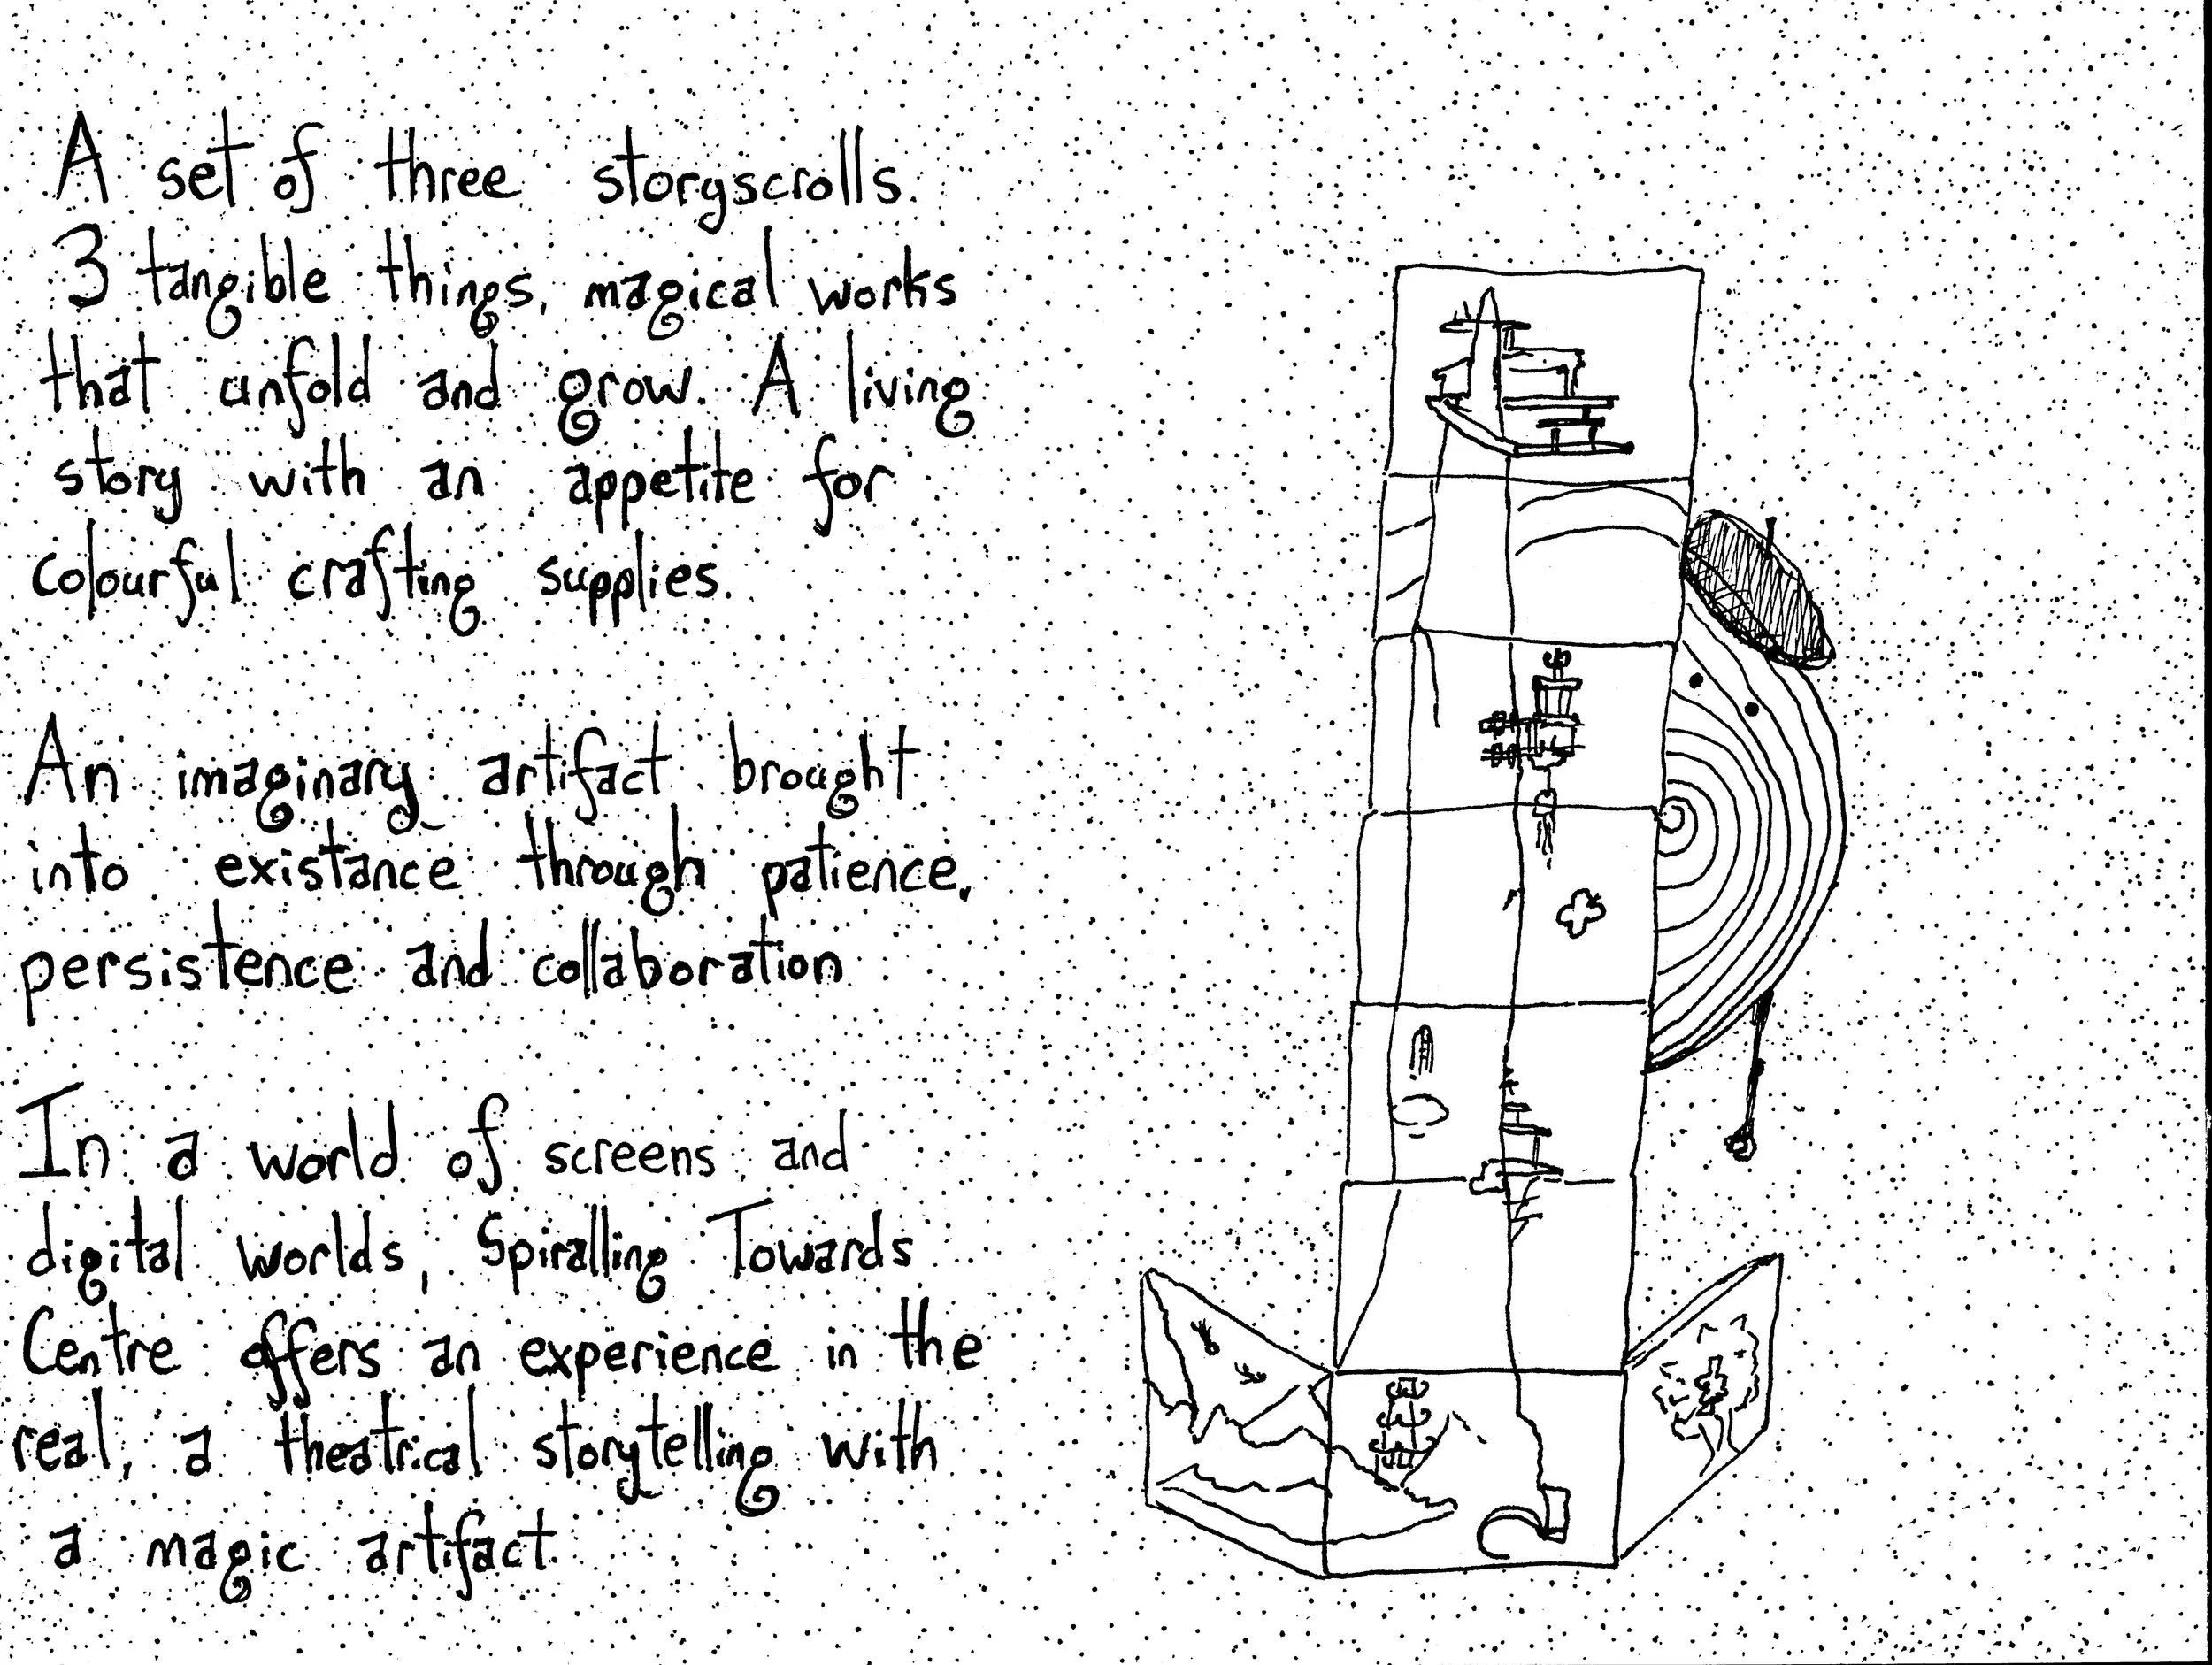 A set of three storyscrolls.
3 tangible things, magical works
that unfold and grow. A living
story with an appetite for
colourful crafting supplies.
An imaginary artifact brought
into existance through patience,
persistence and collaboration
In a world of screens and
digital worlds, Spiralling Towards
Centre offers an experience in the
real, a theatrical storytelling with
a magic artifact